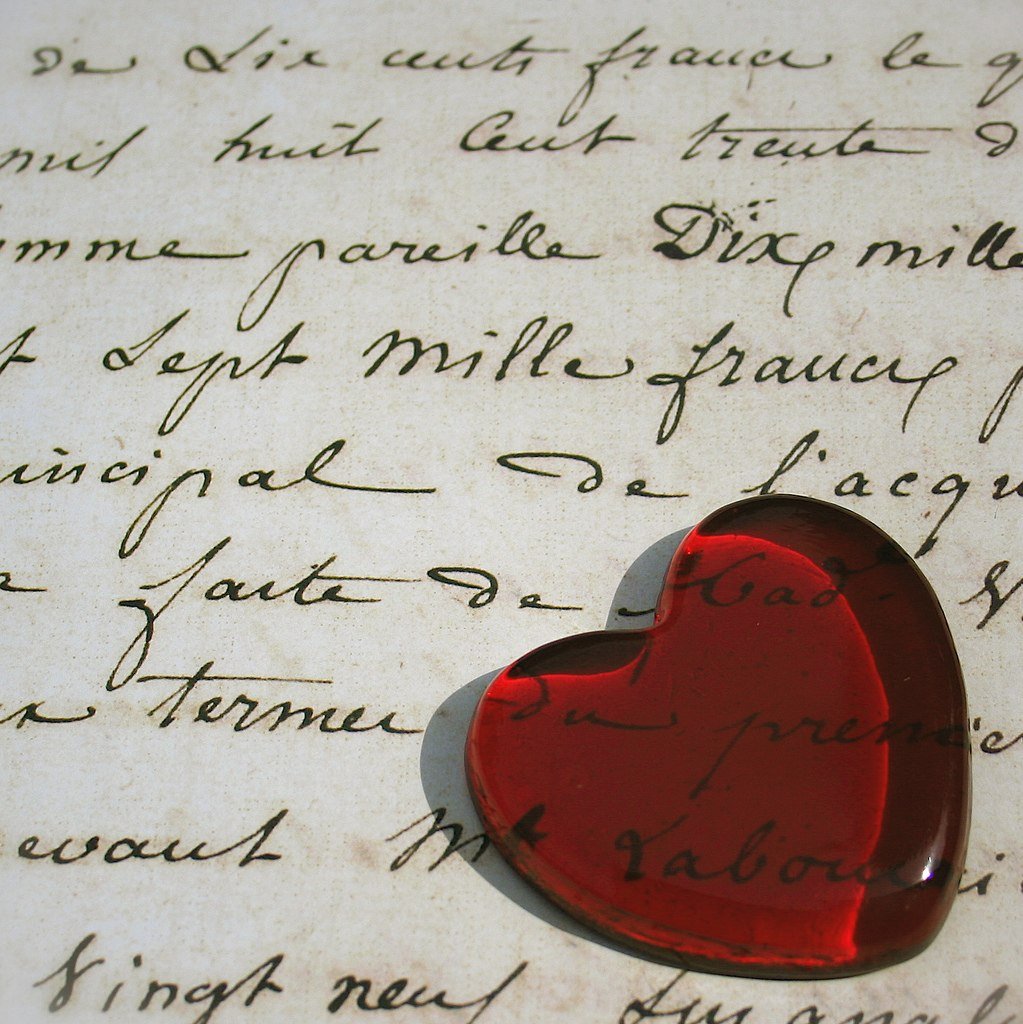 de Six cents francs le q
mil huit Cent trente d
omme pareille Dix mille
t Sept mille francs p
incipal de l'acqu
faite de Mad. V
termes du premier
evant Mt Labour
Vingt neuf